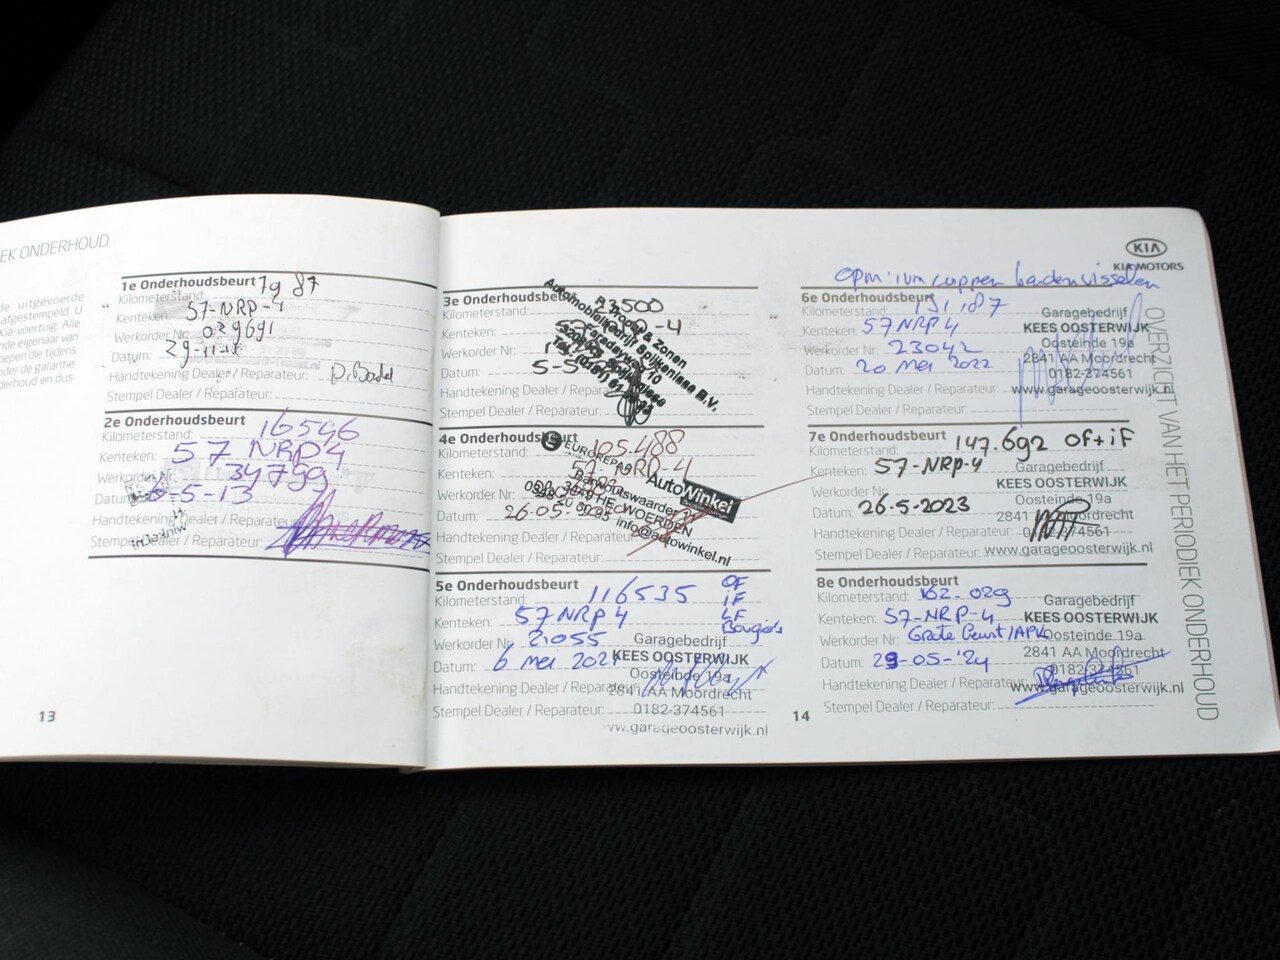 EK ONDERHOUD
de uitgevoerde
afgestempeld. U
Kia-voertuig. Alle
nde eigenaar van
oepen die tijdens
nder de garantie
derhoud en dus
1e Onderhoudsbeurt
Kilometerstand:
Kenteken: 57-NRP-4
Werkorder Nr: 029691
Datum:
Handtekening Dealer / Reparateur:
Stempel Dealer / Reparateur:
2e Onderhoudsbeurt
Kilometerstand: 16546
Kenteken: 57 NRP4
Werkorder Nr: 34799
Datum: 6-5-13
Handtekening Dealer / Reparateur:
Stempel Dealer / Reparateur:
13
3e Onderhoudsbeurt
Kilometerstand:
Kenteken:
Werkorder Nr:
Datum:
Handtekening Dealer / Reparateur:
Stempel Dealer / Reparateur:
& Zonen
Automobielbedrijf Spijkenisse B.V.
4e Onderhoudsbeurt
Kilometerstand: 105.488
Kenteken:
Werkorder Nr:
Datum:
Handtekening Dealer / Reparateur:
Stempel Dealer / Reparateur:
AutoWinkel
info@autowinkel.nl
5e Onderhoudsbeurt
Kilometerstand: 116535 OF
iF
LF
Bougie's
Kenteken: 57 NRP 4
Werkorder Nr: 21055
Datum: 6 mei 2021
Handtekening Dealer / Reparateur:
Stempel Dealer / Reparateur:
Garagebedrijf
KEES OOSTERWIJK
Oosteinde 19a
2841 AA Moordrecht
0182-374561
www.garageoosterwijk.nl
14
KIA
KIA MOTORS
6e Onderhoudsbeurt
Kilometerstand: 131187
Kenteken: 57NRP4
Werkorder Nr: 23042
Datum: 20 mei 2022
Handtekening Dealer / Reparateur:
Stempel Dealer / Reparateur:
Garagebedrijf
KEES OOSTERWIJK
Oosteinde 19a
2841 AA Moordrecht
0182-374561
www.garageoosterwijk.nl
7e Onderhoudsbeurt
Kilometerstand: 147.692 OF+iF
Kenteken: 57-NRP-4
Werkorder Nr:
Datum: 26-5-2023
Handtekening Dealer / Reparateur:
Stempel Dealer / Reparateur:
Garagebedrijf
KEES OOSTERWIJK
Oosteinde 19a
2841 AA Moordrecht
0182-374561
www.garageoosterwijk.nl
8e Onderhoudsbeurt
Kilometerstand: 162.029
Kenteken: 57-NRP-4
Werkorder Nr: Grote Beurt/APK
Datum: 29-05-'24
Handtekening Dealer / Reparateur:
Stempel Dealer / Reparateur:
Garagebedrijf
KEES OOSTERWIJK
Oosteinde 19a
2841 AA Moordrecht
0182-374561
www.garageoosterwijk.nl
OVERZICHT VAN HET PERIODIEK ONDERHOUD